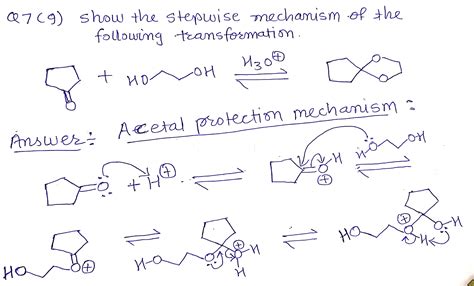 Q7(9) Show the stepwise mechanism of the
following transformation.
O + HO OH H3O⊕ O O
Answer:- Acetal protection mechanism :
O + H⊕ O H ⊕ H O OH
HO O⊕ H-O O O H ⊕ H HO O H O H ⊕